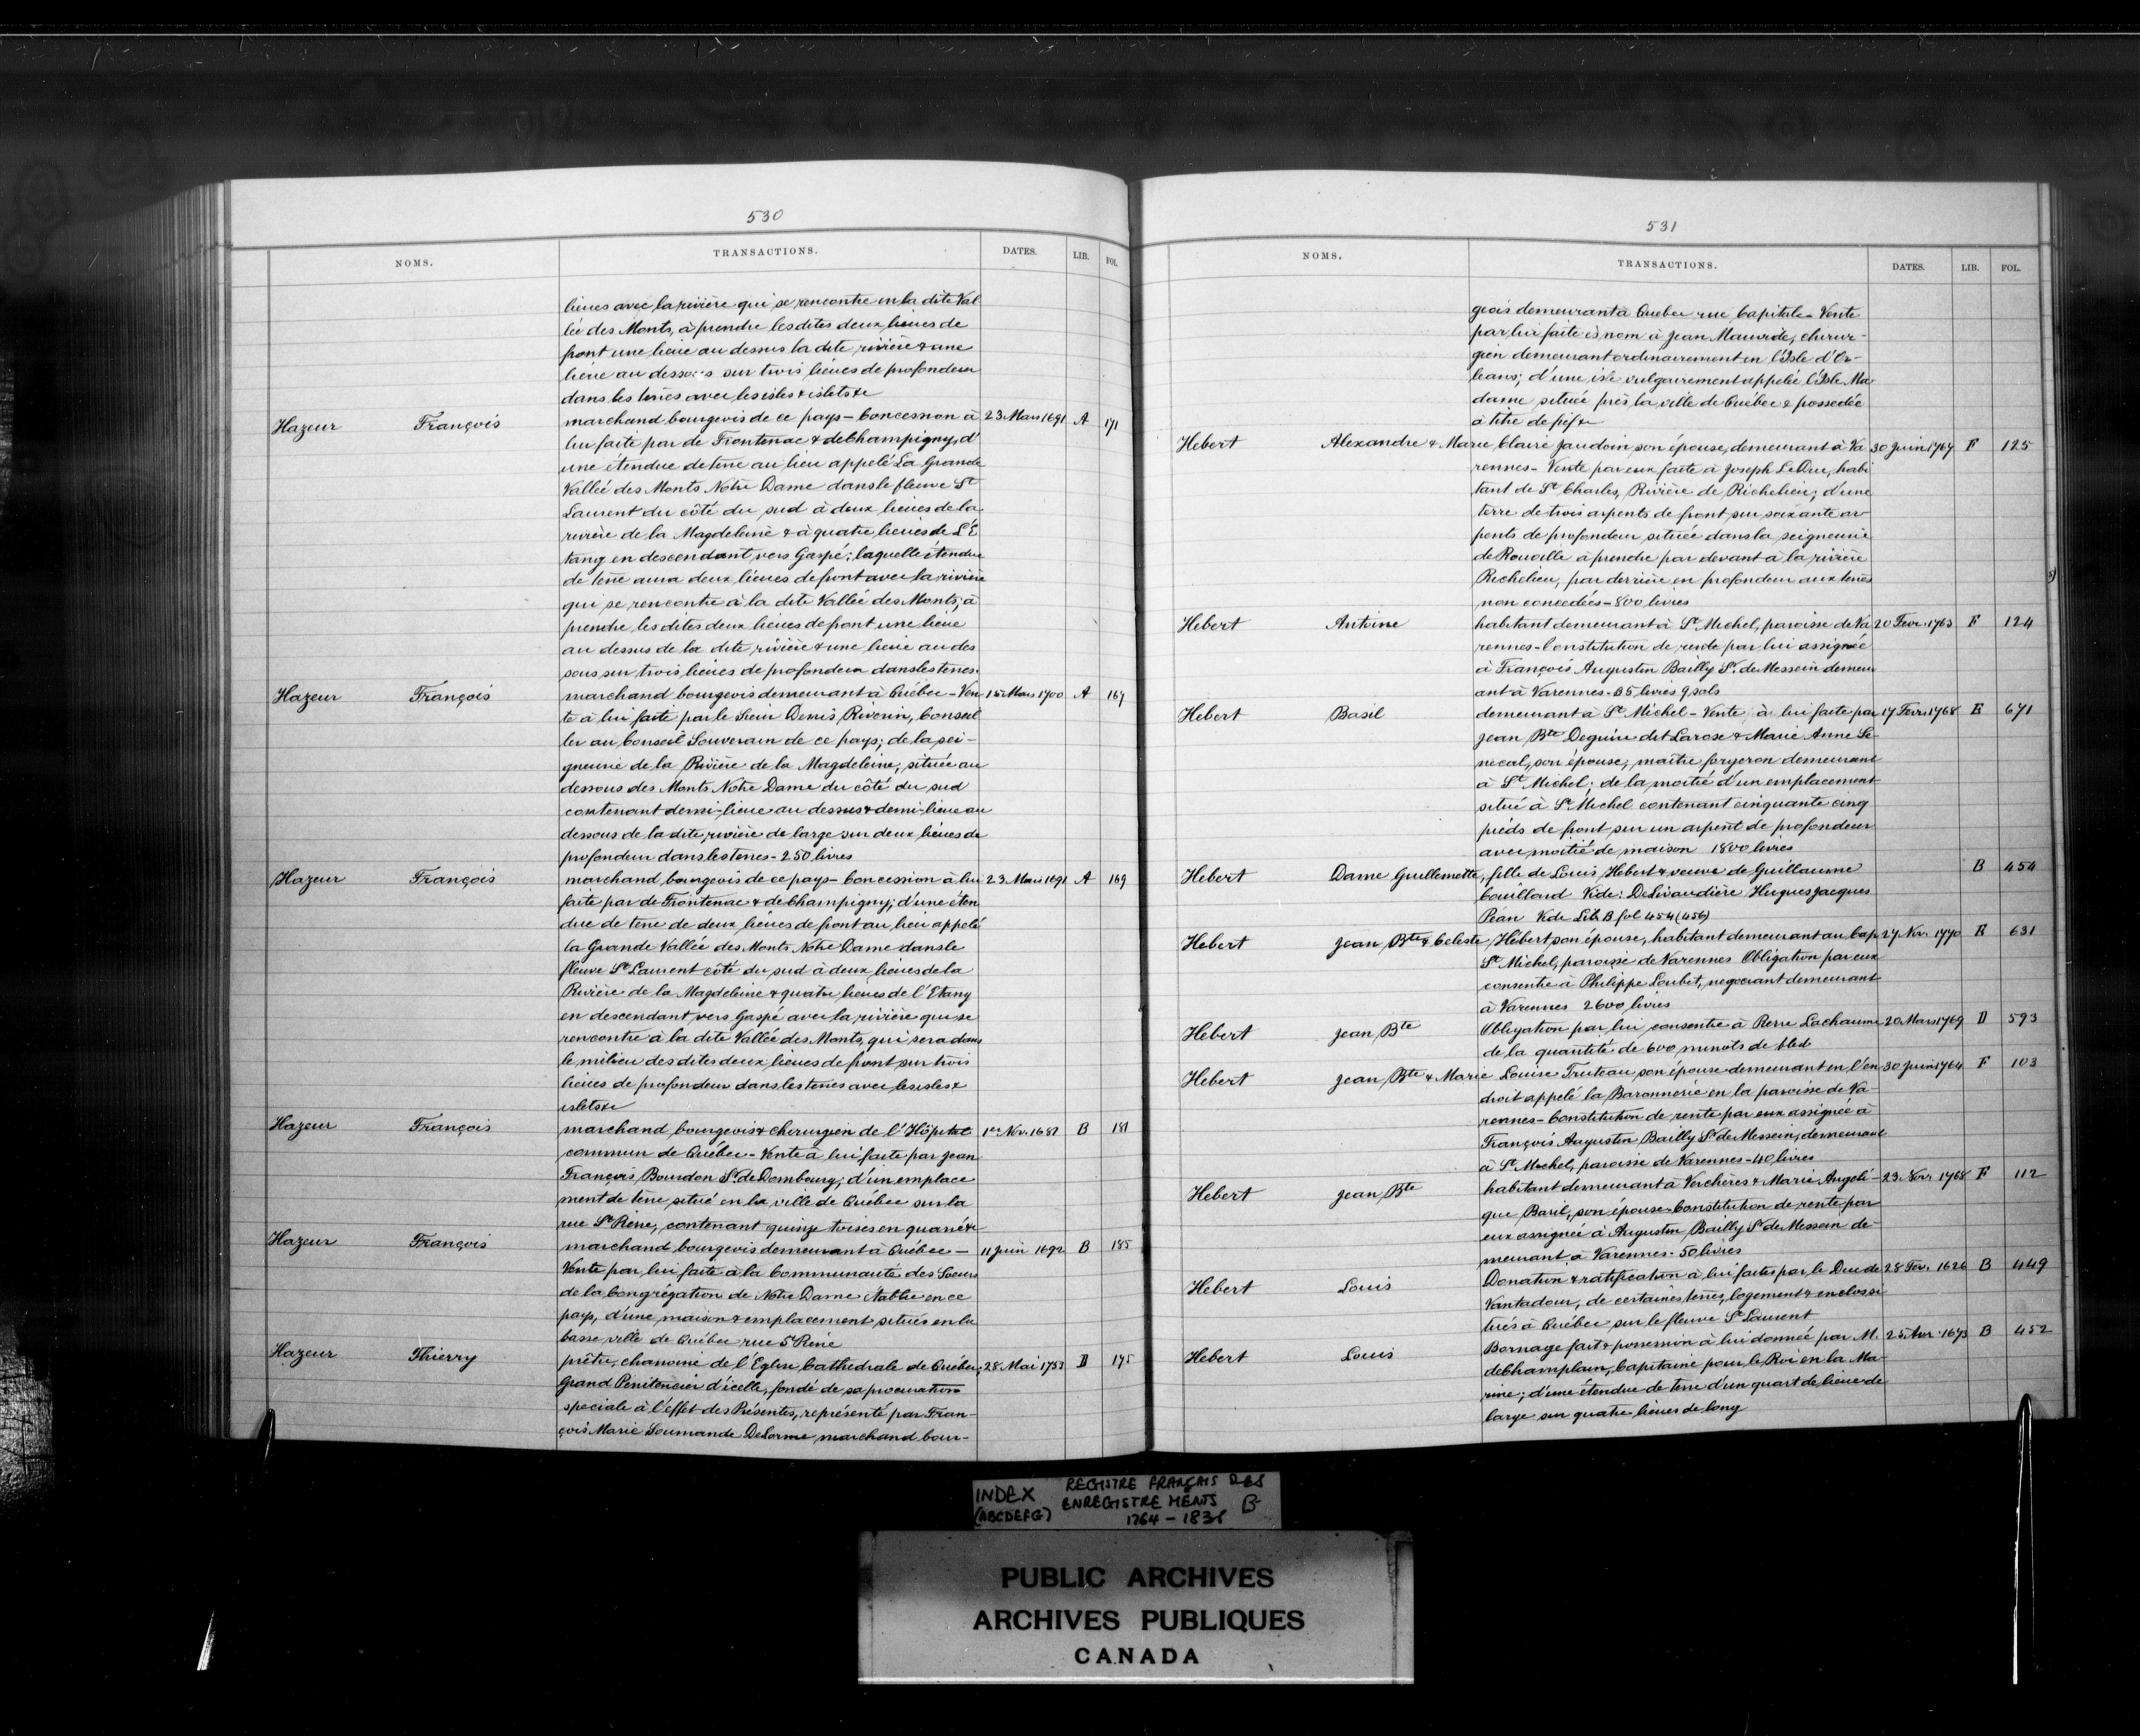 530
NOMS. TRANSACTIONS. DATES. LIB. FOL.
lieues avec la rivière qui se rencontre en la dite Val
lée des Monts, à prendre les dites deux lieues de
front une lieue au dessus la dite rivière & une
lieue au dessous sur trois lieues de profondeur
dans les terres avec les isles & islets &c
Hazeur François marchand bourgeois de ce pays - Concession à 23 Mars 1691 A 171
lui faite par de Frontenac & de Champigny, d'
une étendue de terre au lieu appelé La Grande
Vallée des Monts Notre Dame dans le fleuve St
Laurent du côté du sud à deux lieues de la
rivière de la Magdeleine & à quatre lieues de L'É
tang en descendant vers Gaspé; laquelle étendue
de terre aura deux lieues de front avec la rivière
qui se rencontre à la dite Vallée des Monts, à
prendre les dites deux lieues de front une lieue
au dessus de la dite rivière & une lieue au des
sous sur trois lieues de profondeur dans les terres.
Hazeur François marchand bourgeois demeurant à Québec - Ven 15 Mars 1700 A 167
te à lui faite par le Sieur Denis Riverin, Conseil
ler au Conseil Souverain de ce pays; de la sei-
gneurie de la Rivière de la Magdeleine, située au
dessous des Monts Notre Dame du côté du sud
contenant demi-lieue au dessus & demi-lieue au
dessous de la dite rivière de large sur deux lieues de
profondeur dans les terres - 250 livres
Hazeur François marchand bourgeois de ce pays - Concession à lui 23 Mars 1691 A 169
faite par de Frontenac & de Champigny; d'une éten
due de terre de deux lieues de front au lieu appelé
la Grande Vallée des Monts Notre Dame dans le
fleuve St Laurent côté du sud à deux lieues de la
Rivière de la Magdeleine & quatre lieues de l'Etang
en descendant vers Gaspé avec la rivière qui se
rencontre à la dite Vallée des Monts, qui sera dans
le milieu des dites deux lieues de front sur trois
lieues de profondeur dans les terres avec les isles &
islets &c
Hazeur François marchand bourgeois & chirurgien de l'Hôpital 1er Nov. 1687 B 181
commun de Québec - Vente à lui faite par Jean
François Bourdon Sr. de Dombourg; d'un emplace
ment de terre situé en la ville de Québec sur la
rue St Pierre, contenant quinze toises en quarré &c
Hazeur François marchand bourgeois demeurant à Québec - 11 Juin 1692 B 185
Vente par lui faite à la Communauté des Soeurs
de la Congrégation de Notre Dame établie en ce
pays, d'une maison & emplacement situés en la
basse ville de Québec rue St Pierre
Hazeur Thierry prêtre, chanoine de l'Eglise Cathédrale de Québec, 28 Mai 1753 D 175
Grand Penitencier d'icelle, fondé de sa procuration
speciale à l'effet des Présentes, représenté par Fran-
çois Marie Soumande Delorme marchand bour-
531
NOMS. TRANSACTIONS. DATES. LIB. FOL.
geois demeurant à Quebec rue Capitale - Vente
par lui faite ès nom à Jean Mauvide, chirur-
gien demeurant ordinairement en l'Isle d'Or-
leans; d'une isle vulgairement appelée l'Isle Ma
dame située près la ville de Québec & possedée
à titre de fief &c
Hebert Alexandre & Marie Claire Jaudoin son épouse, demeurant à Va 30 Juin 1767 F 125
rennes - Vente par eux faite à Joseph LeDuc, habi
tant de St Charles, Rivière de Richelieu; d'une
terre de trois arpents de front sur soixante ar
pents de profondeur située dans la seigneurie
de Rouville à prendre par devant à la rivière
Richelieu, par derrière en profondeur aux terres
non concedées - 800 livres
Hebert Antoine habitant demeurant à St Michel, paroisse de Va 20 Fevr. 1763 F 124
rennes - Constitution de rente par lui assignée
à François Augustin Bailly Sr. de Messein demeur
ant à Varennes - 35 livres 9 sols
Hebert Basil demeurant à St Michel - Vente à lui faite par 17 Fevr. 1768 E 671
Jean Bte Deguire dit Larose & Marie Anne Se
necal, son épouse, maître forgeron demeurant
à St Michel; de la moitié d'un emplacement
situé à St Michel contenant cinquante cinq
pieds de front sur un arpent de profondeur
avec moitié de maison 1800 livres
Hebert Dame Guillemette, fille de Louis Hebert & veuve de Guillaume B 454
Couillard Vide: DeLivaudière Hugues Jacques
Péan Vide Lib. B fol 454 (456)
Hebert Jean Bte & Celeste Hébert son épouse, habitant demeurant au Cap 27 Nov. 1770 E 631
St Michel, paroisse de Varennes Obligation par eux
consentie à Philippe Loubet, negociant demeurant
à Varennes 2600 livres
Hebert Jean Bte Obligation par lui consentie à Pierre Lachaume 20 Mars 1769 D 593
de la quantité de 600 minots de bled
Hebert Jean Bte & Marie Louise Truteau son épouse demeurant en l'en 30 Juin 1764 F 103
droit appelé la Baronnerie en la paroisse de Va-
rennes - Constitution de rente par eux assignée à
François Augustin Bailly Sr de Messein, demeurant
à St Michel, paroisse de Varennes - 40 livres
Hebert Jean Bte habitant demeurant à Verchères & Marie Angeli- 23 Nov. 1768 F 112
que Baril, son épouse - Constitution de rente par
eux assignée à Augustin Bailly Sr de Messein de-
meurant à Varennes - 50 livres
Hebert Louis Donation & ratification à lui faites par le Duc de 28 Fev. 1626 B 449
Vantadour, de certaines terres, logement & enclos si
tués à Québec sur le fleuve St Laurent
Hebert Louis Bornage fait & possession à lui donnée par M. 25 Avr. 1673 B 452
de Champlain, Capitaine pour le Roi en la Ma-
rine; d'une étendue de terre d'un quart de lieue de
large sur quatre lieues de long
INDEX (ABCDEFG) REGISTRE FRANÇAIS DES
ENREGISTREMENTS B
1764 - 1831
PUBLIC ARCHIVES
ARCHIVES PUBLIQUES
CANADA